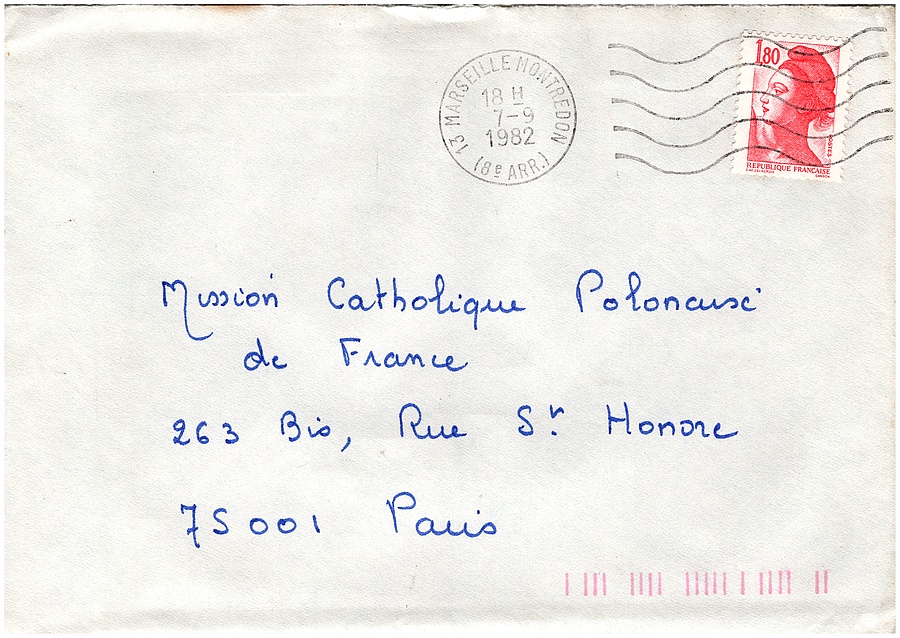 13 MARSEILLE MONTREDON
18 H
7-9
1982
(8e ARR.)
1,80
POSTES
REPUBLIQUE FRANÇAISE
Mission Catholique Polonaise
de France
263 Bis, Rue St. Honore
75001 Paris